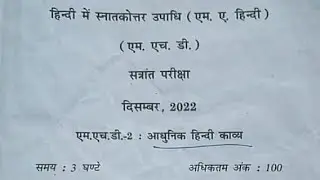 हिन्दी में स्नातकोत्तर उपाधि (एम. ए. हिन्दी)
(एम. एच. डी.)
सत्रांत परीक्षा
दिसम्बर, 2022
एम.एच.डी.-2 : आधुनिक हिन्दी काव्य
समय : 3 घण्टे अधिकतम अंक : 100